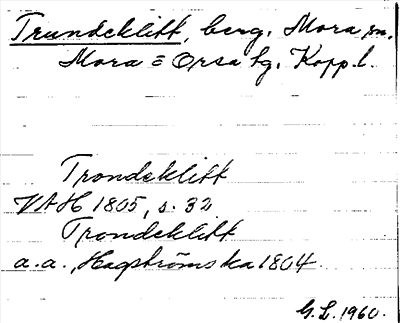 Trundeklitt, berg. Mora sn.
Mora o Orsa tg. Kopp. l.
Trondeklitt
VAH 1805, s. 32
Trondeklitt
a.a., Hagströmska 1804
G.L. 1960.